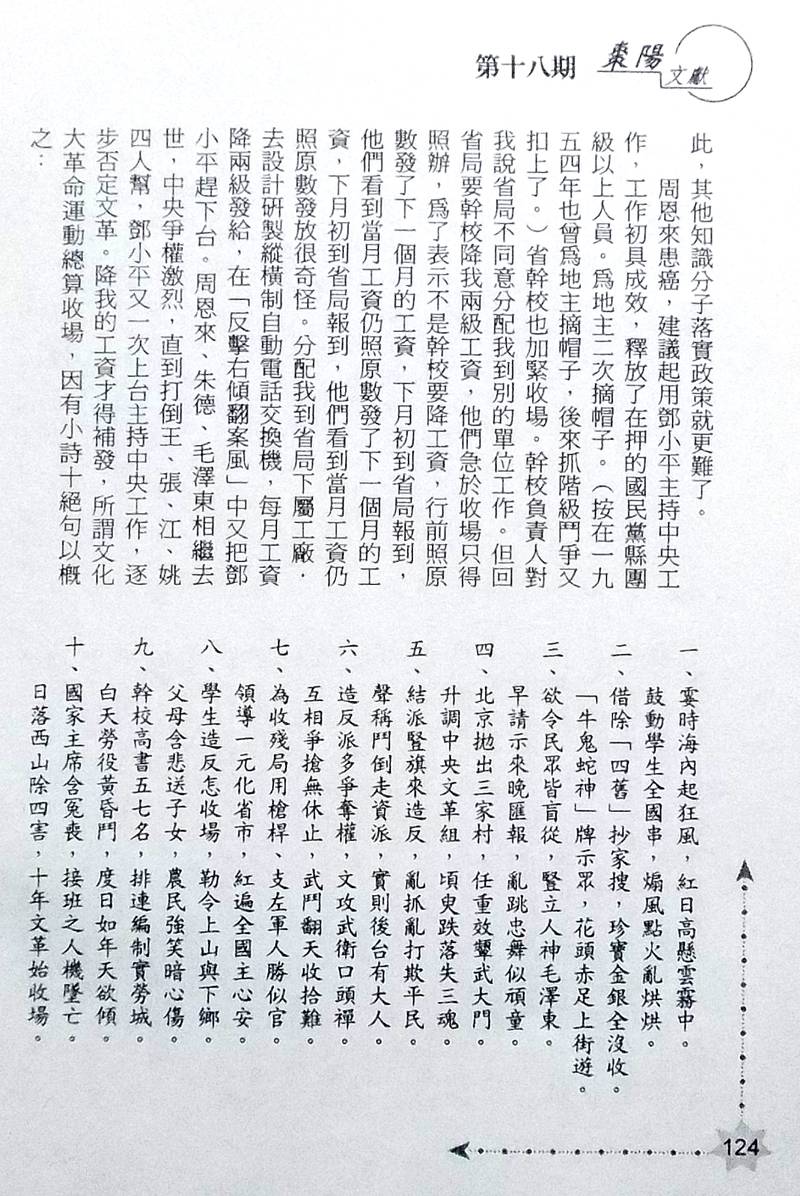 第十八期
棗陽
文獻
此，其他知識分子落實政策就更難了。
周恩來患癌，建議起用鄧小平主持中央工
作，工作初具成效，釋放了在押的國民黨縣團
級以上人員。爲地主二次摘帽子。（按在一九
五四年也曾爲地主摘帽子，後來抓階級鬥爭又
扣上了。）省幹校也加緊收場。幹校負責人對
我說省局不同意分配我到別的單位工作。但回
省局要幹校降我兩級工資，他們急於收場只得
照辦，爲了表示不是幹校要降工資，行前照原
數發了下一個月的工資，下月初到省局報到，
他們看到當月工資仍照原數發了下一個月的工
資，下月初到省局報到，他們看到當月工資仍
照原數發放很奇怪。分配我到省局下屬工廠．
去設計研製縱橫制自動電話交換機，每月工資
降兩級發給，在「反擊右傾翻案風」中又把鄧
小平趕下台。周恩來、朱德、毛澤東相繼去
世，中央爭權激烈，直到打倒王、張、江、姚
四人幫，鄧小平又一次上台主持中央工作，逐
步否定文革。降我的工資才得補發，所謂文化
大革命運動總算收場，因有小詩十絕句以概
之：
一、霎時海內起狂風，紅日高懸雲霧中。
鼓動學生全國串，煽風點火亂烘烘。
二、借除「四舊」抄家搜，珍寶金銀全沒收。
「牛鬼蛇神」牌示眾，花頭赤足上街遊。
三、欲令民眾皆盲從，豎立人神毛澤東。
早請示來晚匯報，亂跳忠舞似頑童。
四、北京拋出三家村，任重效顰武大門。
升調中央文革組，頃臾跌落失三魂。
五、結派豎旗來造反，亂抓亂打欺平民。
聲稱鬥倒走資派，實則後台有大人。
六、造反派多爭奪權，文攻武衛口頭禪。
互相爭搶無休止，武鬥翻天收拾難。
七、為收殘局用槍桿、支左軍人勝似官。
領導一元化省市，紅遍全國主心安。
八、學生造反怎收場，勒令上山與下鄉。
父母含悲送子女，農民強笑暗心傷。
九、幹校高書五七名，排連編制實勞城。
白天勞役黃昏鬥，度日如年天欲傾。
十、國家主席含冤喪，接班之人機墜亡。
日落西山除四害，十年文革始收場。
124